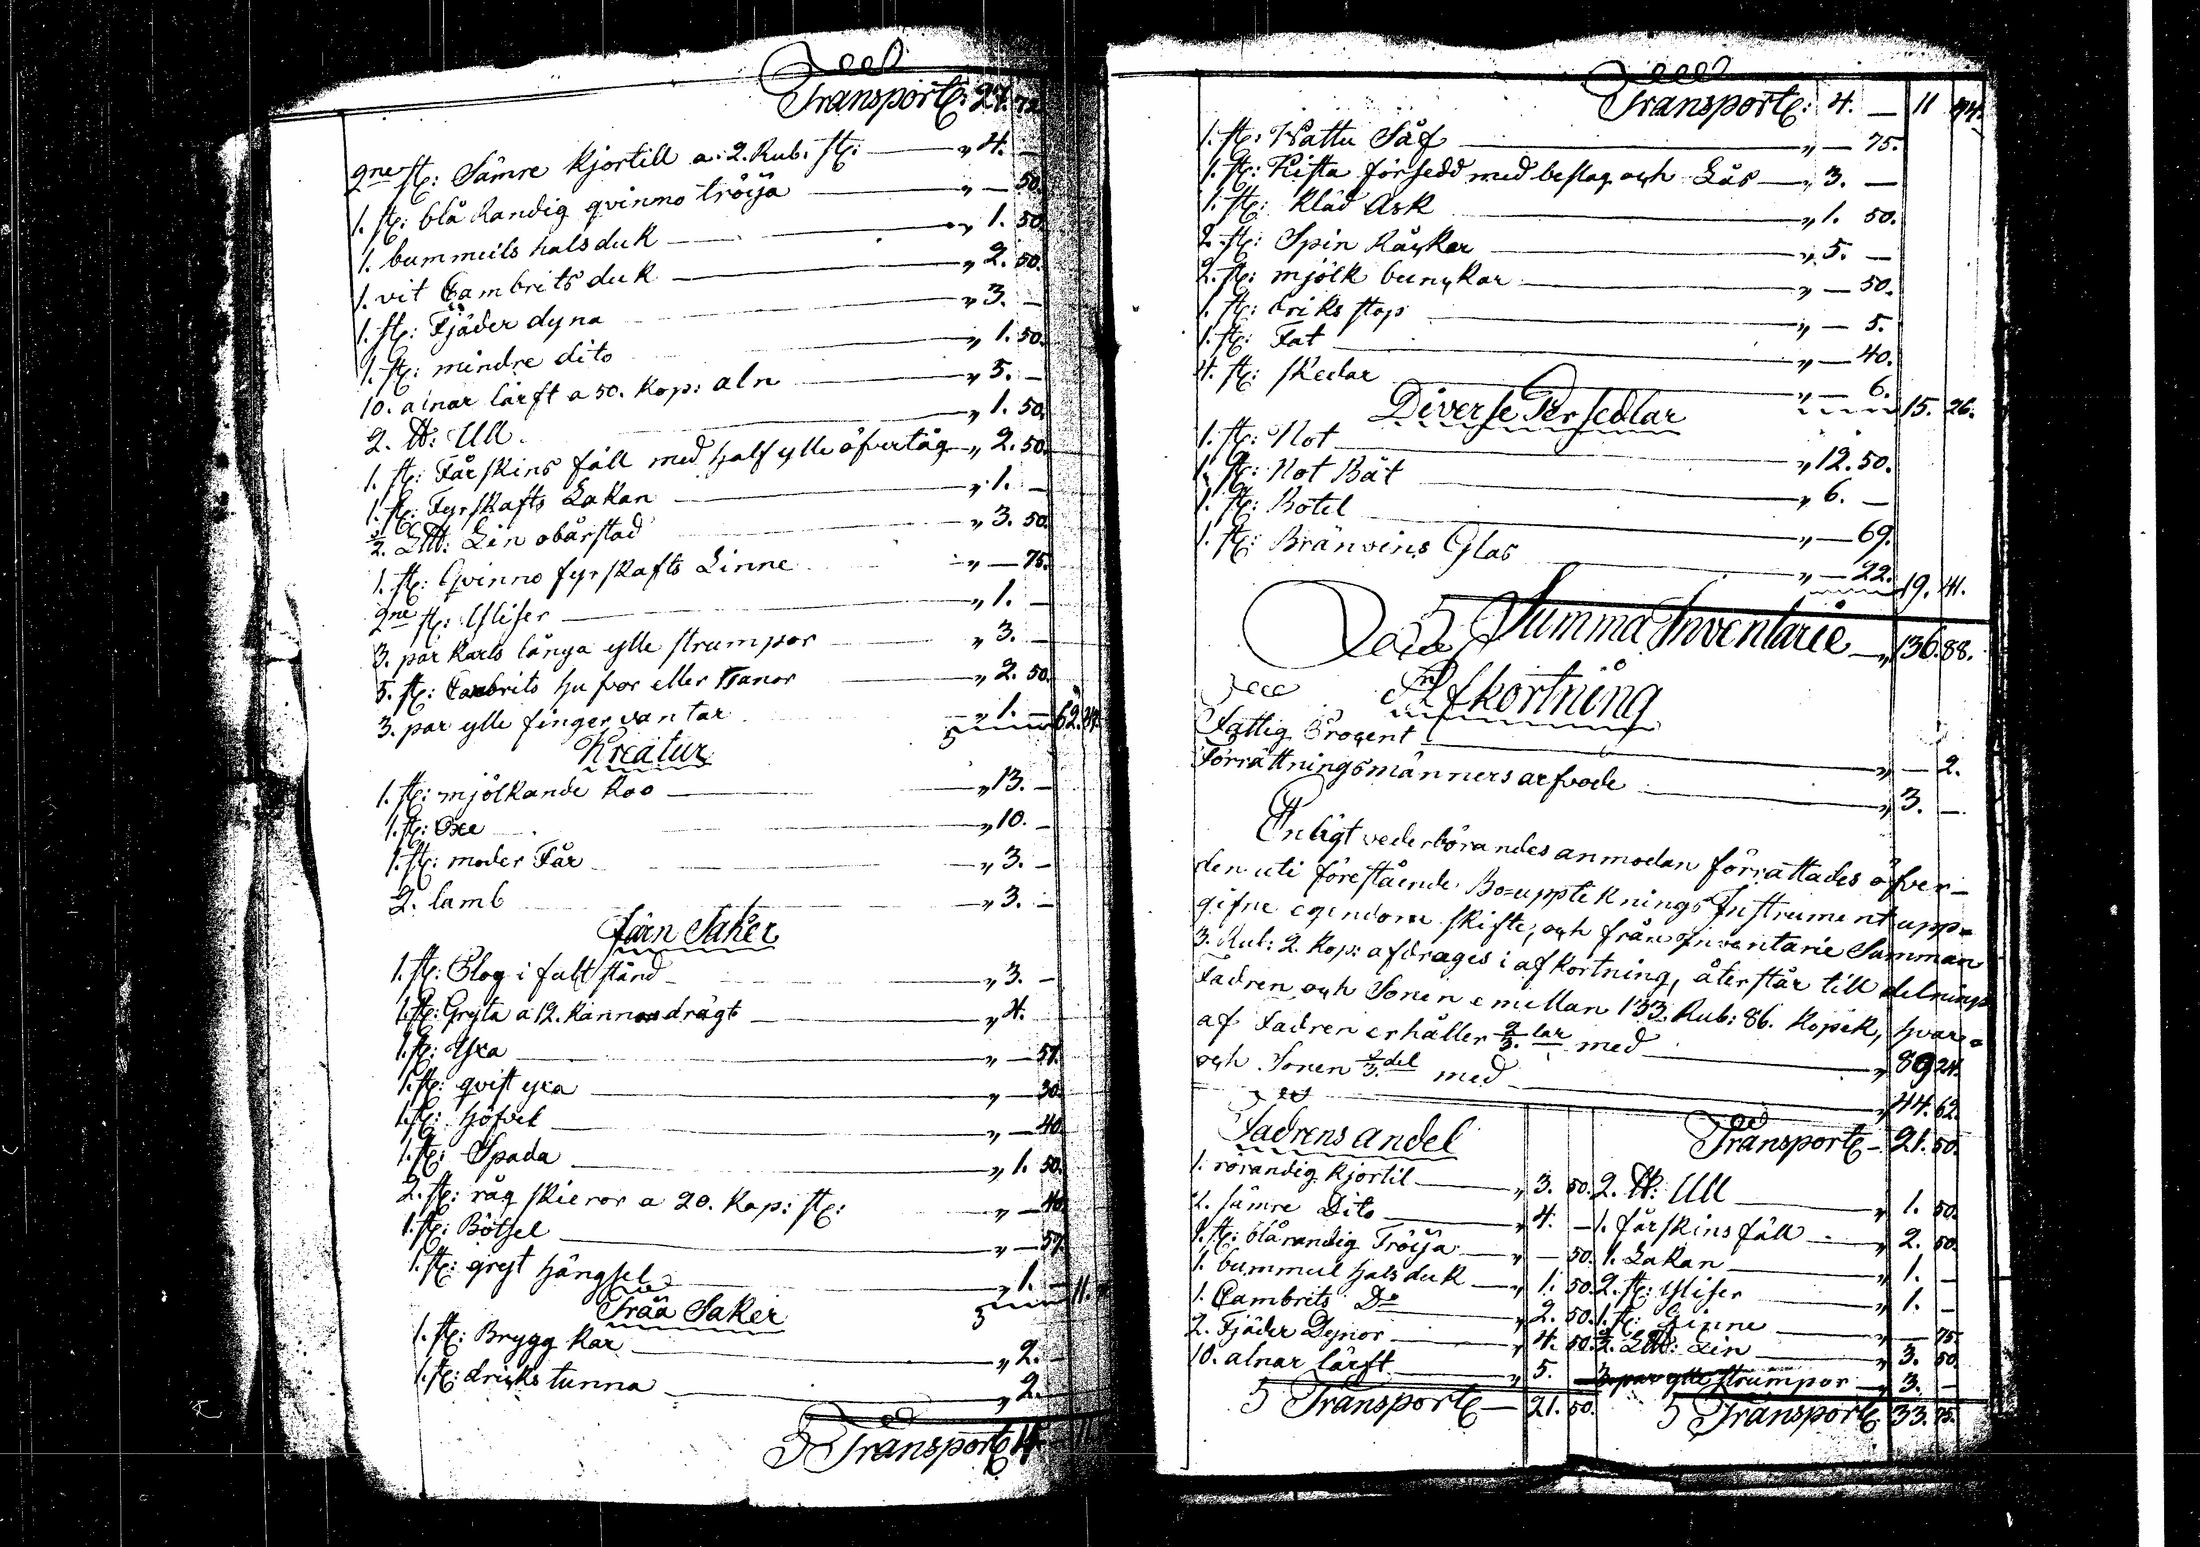 Transport: 27. 72
2ne st: Sämre Kjortill a. 2. Rub. st: " 4. —
1. st: blå Randig qvinno tröija " — 50.
1. bummuils halsduk " 1. 50.
1. vit Cambrits duk " 2. 50.
1. st: Fjäder dyna " 3. —
1. st: mindre dito " 1. 50.
10. alnar lärft a 50. Kop: aln " 5. —
2. ℔: Ull " 1. 50.
1. st: Fårskins fäll med half ylle öfvertåg " 2. 50.
1. st: Fyrskafts Lakan " 1. —
L℔: Lin obårstad " 3. 50.
1. st: Qvinno fyrskafts Linne " — 75.
2ne st: Yllser " 1. —
3. par Karls långa ylle strumpor " 3. —
5. st: Cambrits hufvor eller " 2. 50.
3. par ylle finger vantar " 1. — 62.
Kreatur
1. st: mjölkande Koo " 13. —
1. st: Oxe " 10. —
1. st: moder Får " 3. —
2. lamb " 3. —
Järn Saker
1. st: Plog i fult stånd " 3. —
1. st: Gryta a 12. Kannors drägt " 4.
1. st: Yxa " — 57.
1. st: qvist yxa " — 30.
1. st: Höfvel " — 40
1. st: Spada " 1. 50.
2. st: råg skieror a 20. Kop: st: " — 40
1. st: Bötsel " — 57.
1. st: gryt hängsel " 1. — 11.
Trää Saker
1. st: Brygg Kar " 2. —
1. st: dricks tunna " 2.
Transport 4.
Transport: 4. — 11 74.
1. st: Vattu Såg " — 75.
1. st: Kista försedd med beslag och Lås " 3. —
1. st: Kläd Ask " 1. 50.
2. st: Spin Råckar " 5. —
2. st: mjölk bunckar " — 50.
1. st: Driks stop " — 5.
1. st: Fat " — 40.
4. st: skedar " — 6. 15. 26.
Diverse Persedlar
1. st: Not " 12. 50.
1. st: Not Båt " 6. —
1. st: Botel " — 69.
1. st: Bränvins Glas " — 22. 19. 41.
Summa Inventarie " 136. 88.
Afkortning
Fattig Procent " — 2.
Förrättningsmänners arfvode " 3. —
Enligt vederbörandes anmodan förrättades öfver
den uti förestående Bo=upptecknings Instrument upp=
gifne egendom skifte; och från Inventarie Summan
3. Rub: 2. Kop: afdrages i afkortning, återstår till delnings
Fadren och Sonen emellan 133. Rub: 86. Kopek, hvar=
af Fadren erhåller 2/3 lar med " 89 24.
och Sonen del med " 44. 62
Fadrens andel
1. rörandig Kjortil " 3. 50.
2. sämre Dito " 4. —
1. st: blårandig Tröija " — 50.
1. bummul halsduk " 1. 50
1. Cambrits Do " 2. 50.
2. Fjäder Dynor " 4. 50.
10. alnar lärft " 5.
Transport 21. 50.
Transport 21. 50.
2. ℔: Ull " 1. 50.
1. fårskins fäll " 2. 50
1. Lakan " 1. —
2. st: Yllser " 1. —
1. st: Linne " — 75
L℔: Lin " 3. 50
3 par ylle strumpor " 3. —
Transport 33. 75.